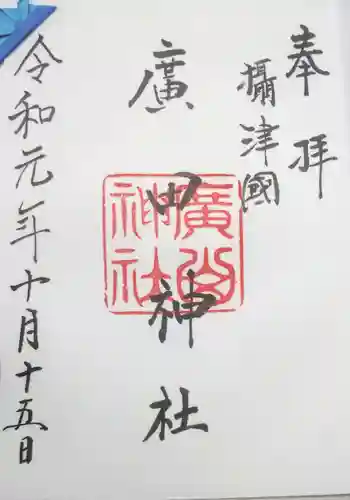 奉拝
攝津國
廣田神社
令和元年十月十五日